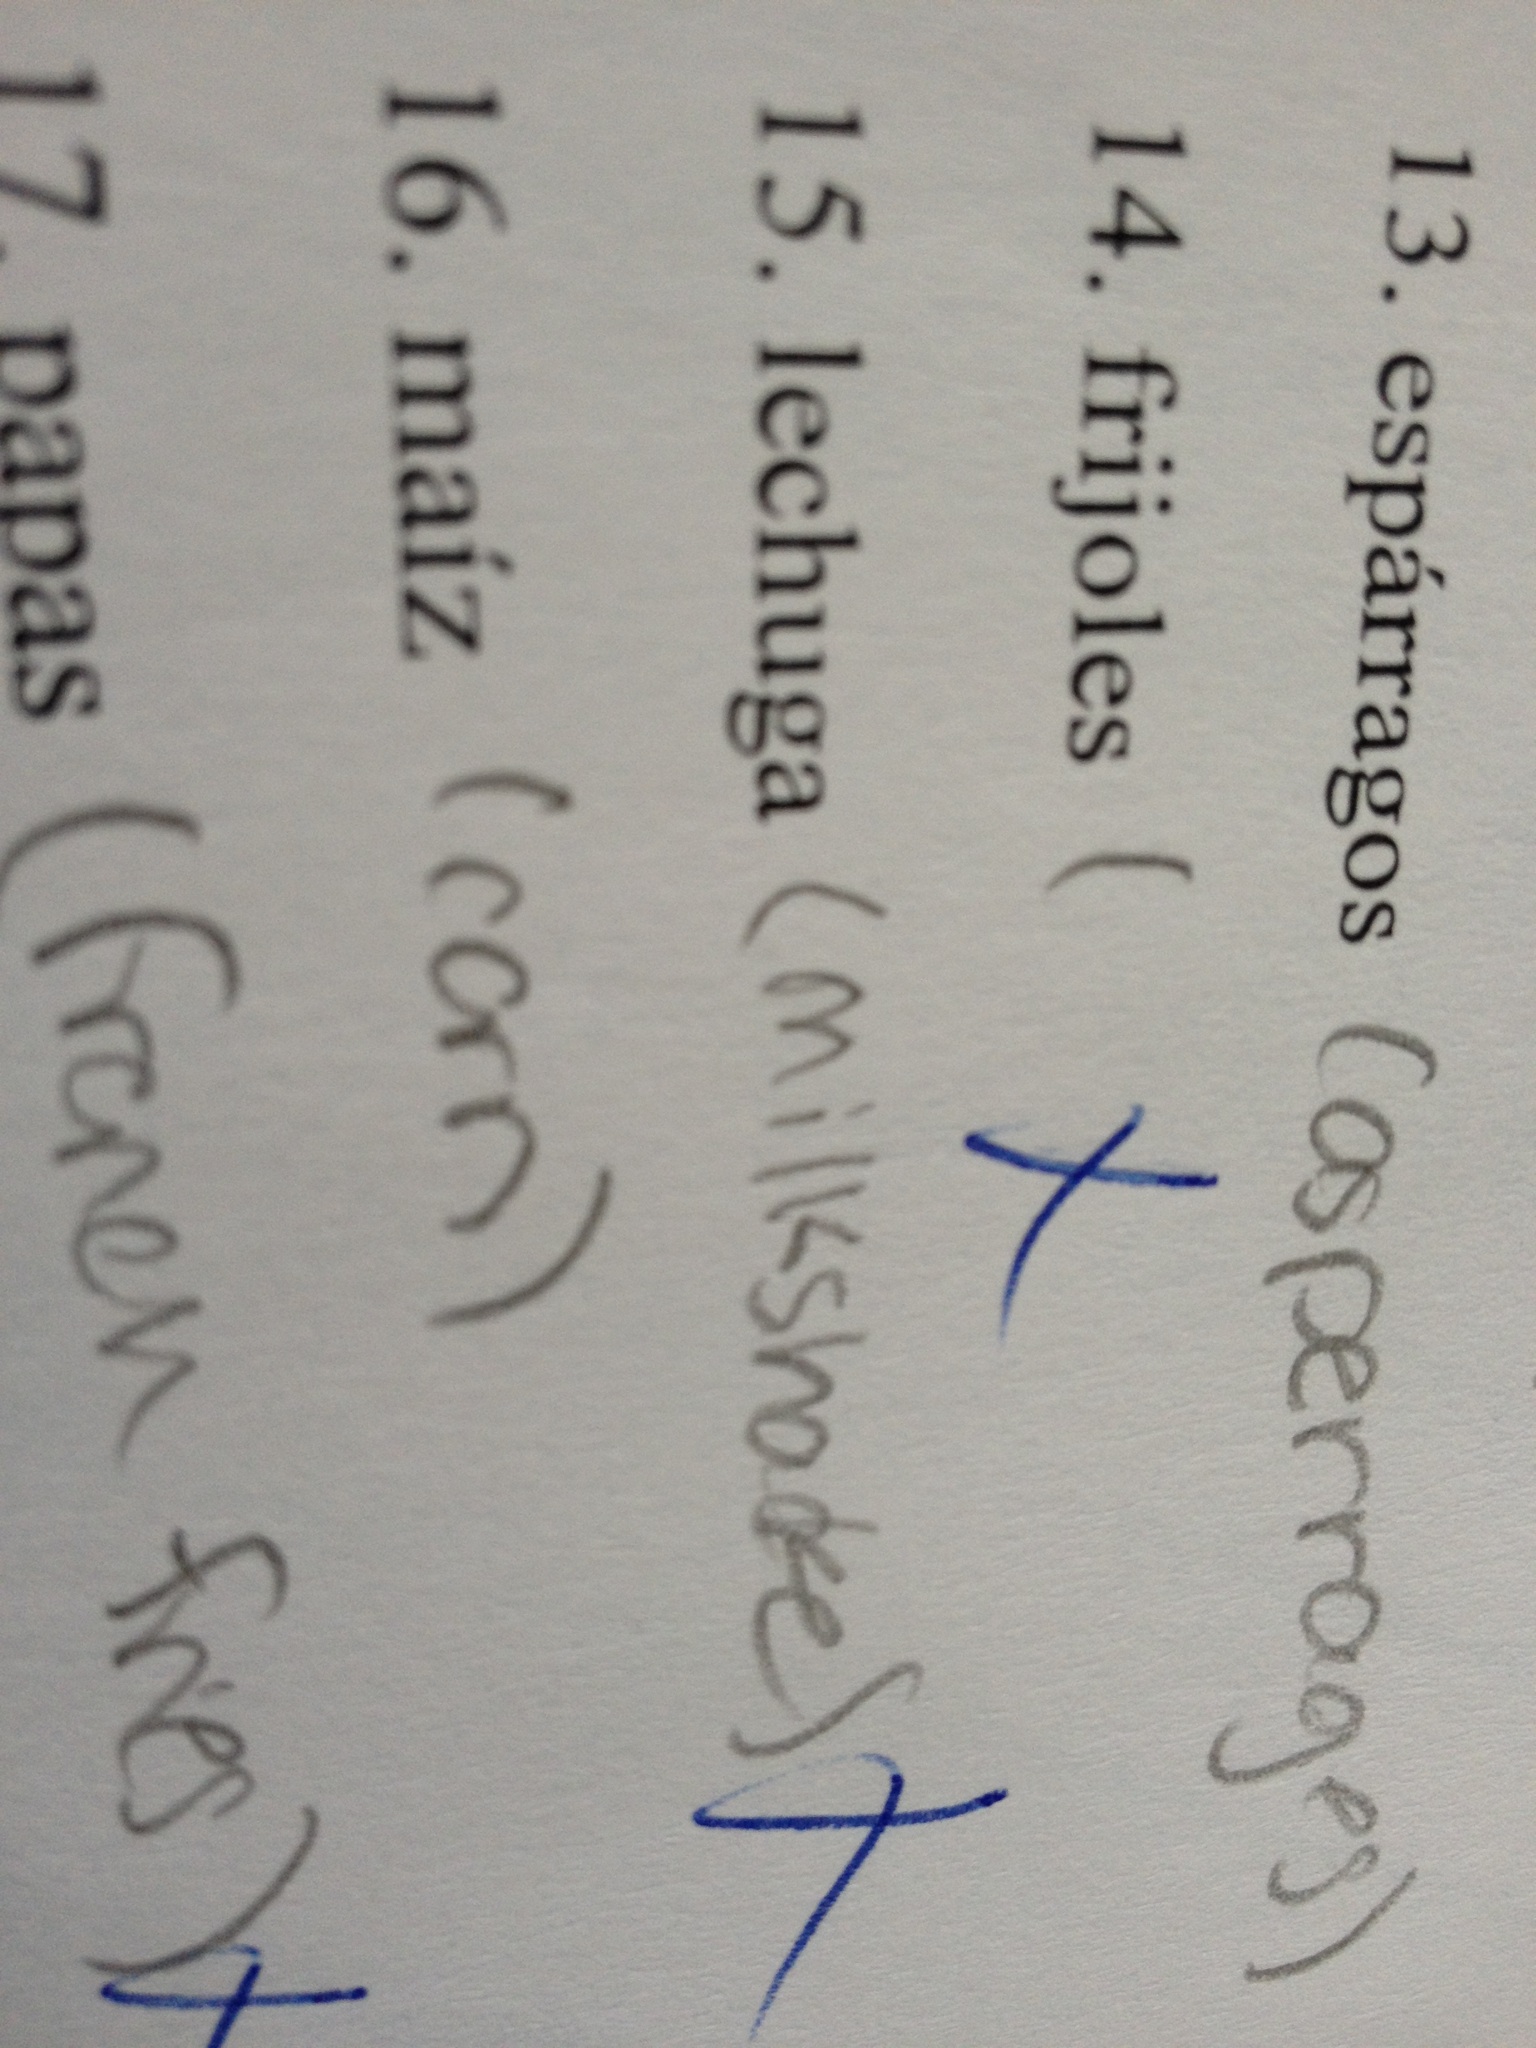 13. espárragos (asperrages)
14. frijoles (
15. lechuga (milkshakes)
16. maíz (corn)
17. papas (french fries)